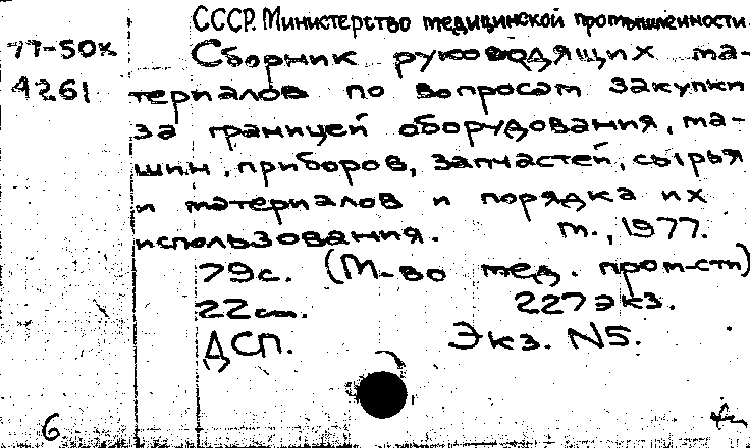 СССР. Министерство медицинской промышленности.
77-50к Сборник руководящих ма-
4261 териалов по вопросам закупки
за границей оборудования, ма-
шин, приборов, запчастей, сырья
и материалов и порядка их
использования. М., 1977.
79с. (М-во мед. пром-сти)
22см. 227 экз.
ДСП. Экз. N5.
6